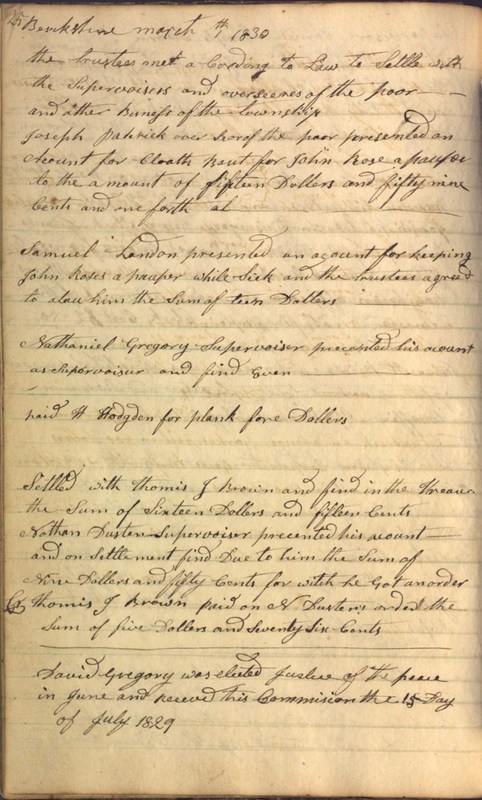 Berkshire march th 1 1830
the trustees met a Cording to Law to Settle with
the Supervoisors and overseeres of the poor
and other Buness of the township
Joseph Patrick over Seor of the poor presented an
Acount for Cloath baut for John Rose a pauper
to the amount of fifteen Dollers and fifty nine
Cents and one forth at
Samuel London presented an acount for keeping
John Roses a pauper while Sick and the trustees agreed
to alau him the Sum of teen Dollers
Nathaniel Gregory Supervoiser precented his acount
as Supervoiser and find Even
paid H Hodgden for plank fore Dollers
Settled with thomis J Brown and find in the Treaur
the Sum of Sixteen Dollers and fifteen Cents
Nathan Dusten Supervoiser precented his acount
and on Settlement find Due to him the Sum of
Nine Dollers and fifty Cents for witch he Got an order
thomis J Brown paid on N Dustens order the
Sum of five Dollers and Seventy Six Cents
David Gregory was elected Justice of the peace
in June and receved his Commision the 15 Day
of July 1829